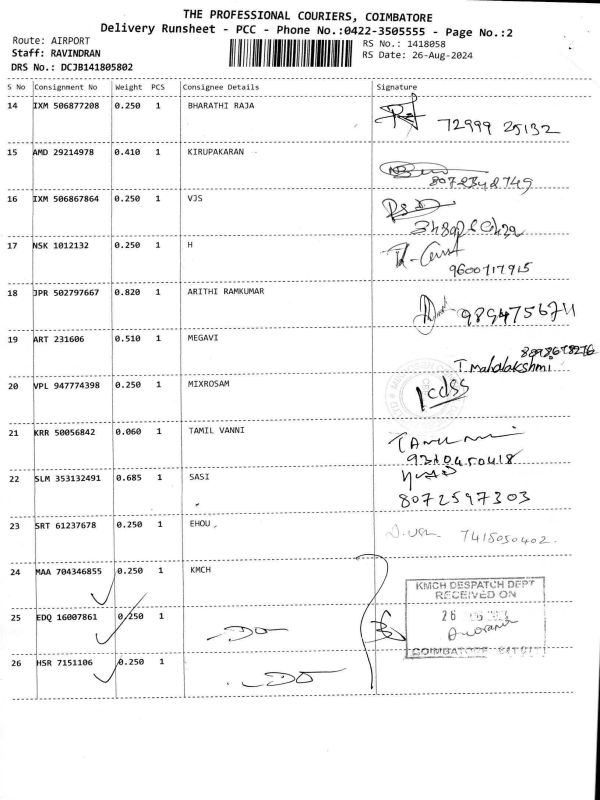 THE PROFESSIONAL COURIERS, COIMBATORE
Delivery Runsheet - PCC - Phone No.:0422-3505555 - Page No.:2
Route: AIRPORT RS No.: 1418058
Staff: RAVINDRAN RS Date: 26-Aug-2024
DRS No.: DCJB141805802
S No Consignment No Weight PCS Consignee Details Signature
14 IXM 506877208 0.250 1 BHARATHI RAJA
72999 25132
15 AMD 29214978 0.410 1 KIRUPAKARAN
16 IXM 506867864 0.250 1 VJS
17 NSK 1012132 0.250 1 H
9600717915
18 JPR 502797667 0.820 1 ARITHI RAMKUMAR
9894756711
19 ART 231606 0.510 1 MEGAVI
T. Mahalakshmi
20 VPL 947774398 0.250 1 MIXROSAM
icdss
21 KRR 50056842 0.060 1 TAMIL VANNI
22 SLM 353132491 0.685 1 SASI
8072597303
23 SRT 61237678 0.250 1 EHOU
7418050402.
24 MAA 704346855 0.250 1 KMCH
KMCH DESPATCH DEPT
RECEIVED ON
25 EDQ 16007861 0.250 1
-DO-
26
COIMBATORE
26 HSR 7151106 0.250 1
-DO-